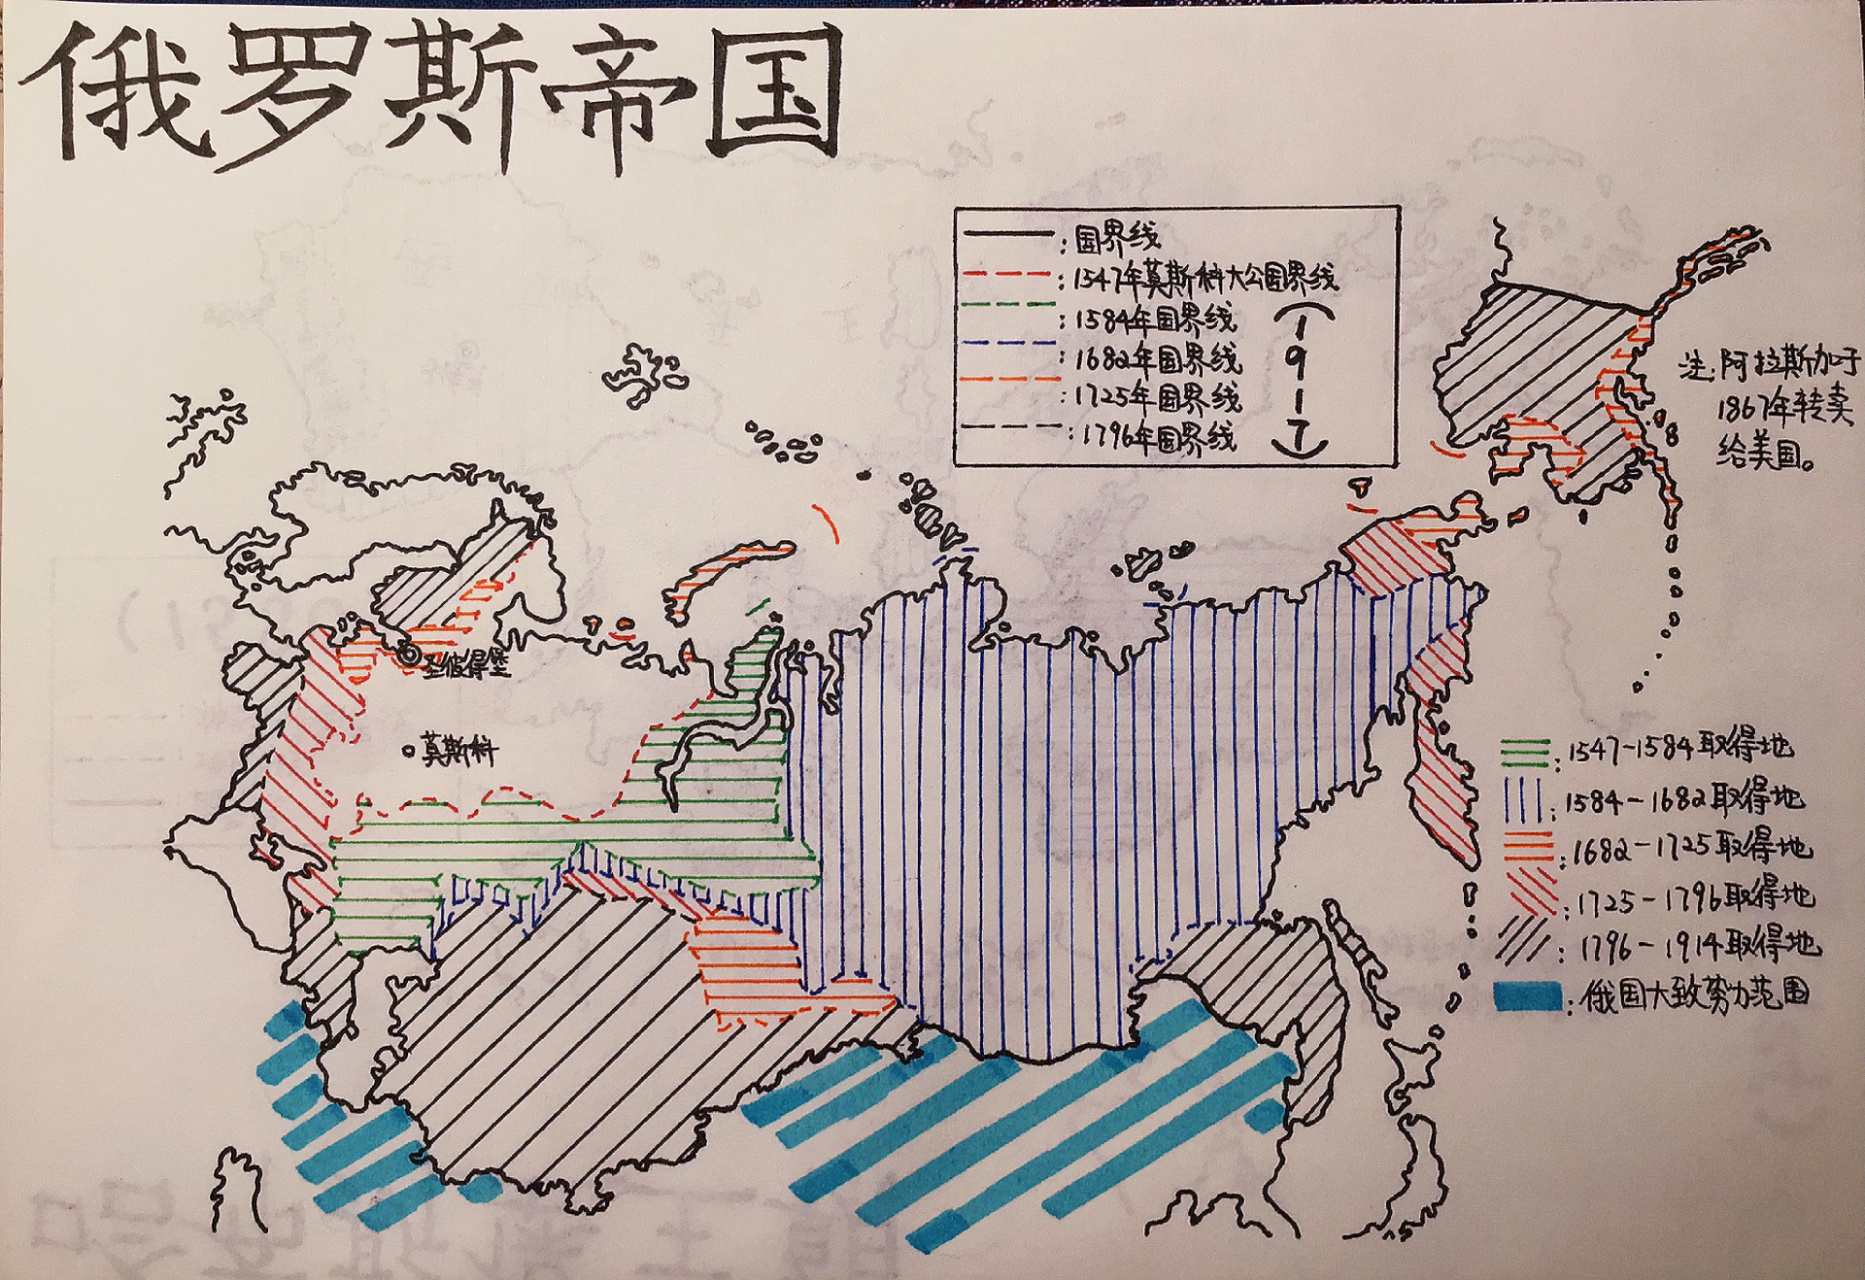 俄罗斯帝国
:国界线
:1547年莫斯科大公国界线
:1584年国界线
:1682年国界线
:1725年国界线
:1796年国界线
(1917)
注:阿拉斯加于
1867年转卖
给美国。
圣彼得堡
莫斯科
:1547-1584取得地
:1584-1682取得地
:1682-1725取得地
:1725-1796取得地
:1796-1914取得地
:俄国大致势力范围